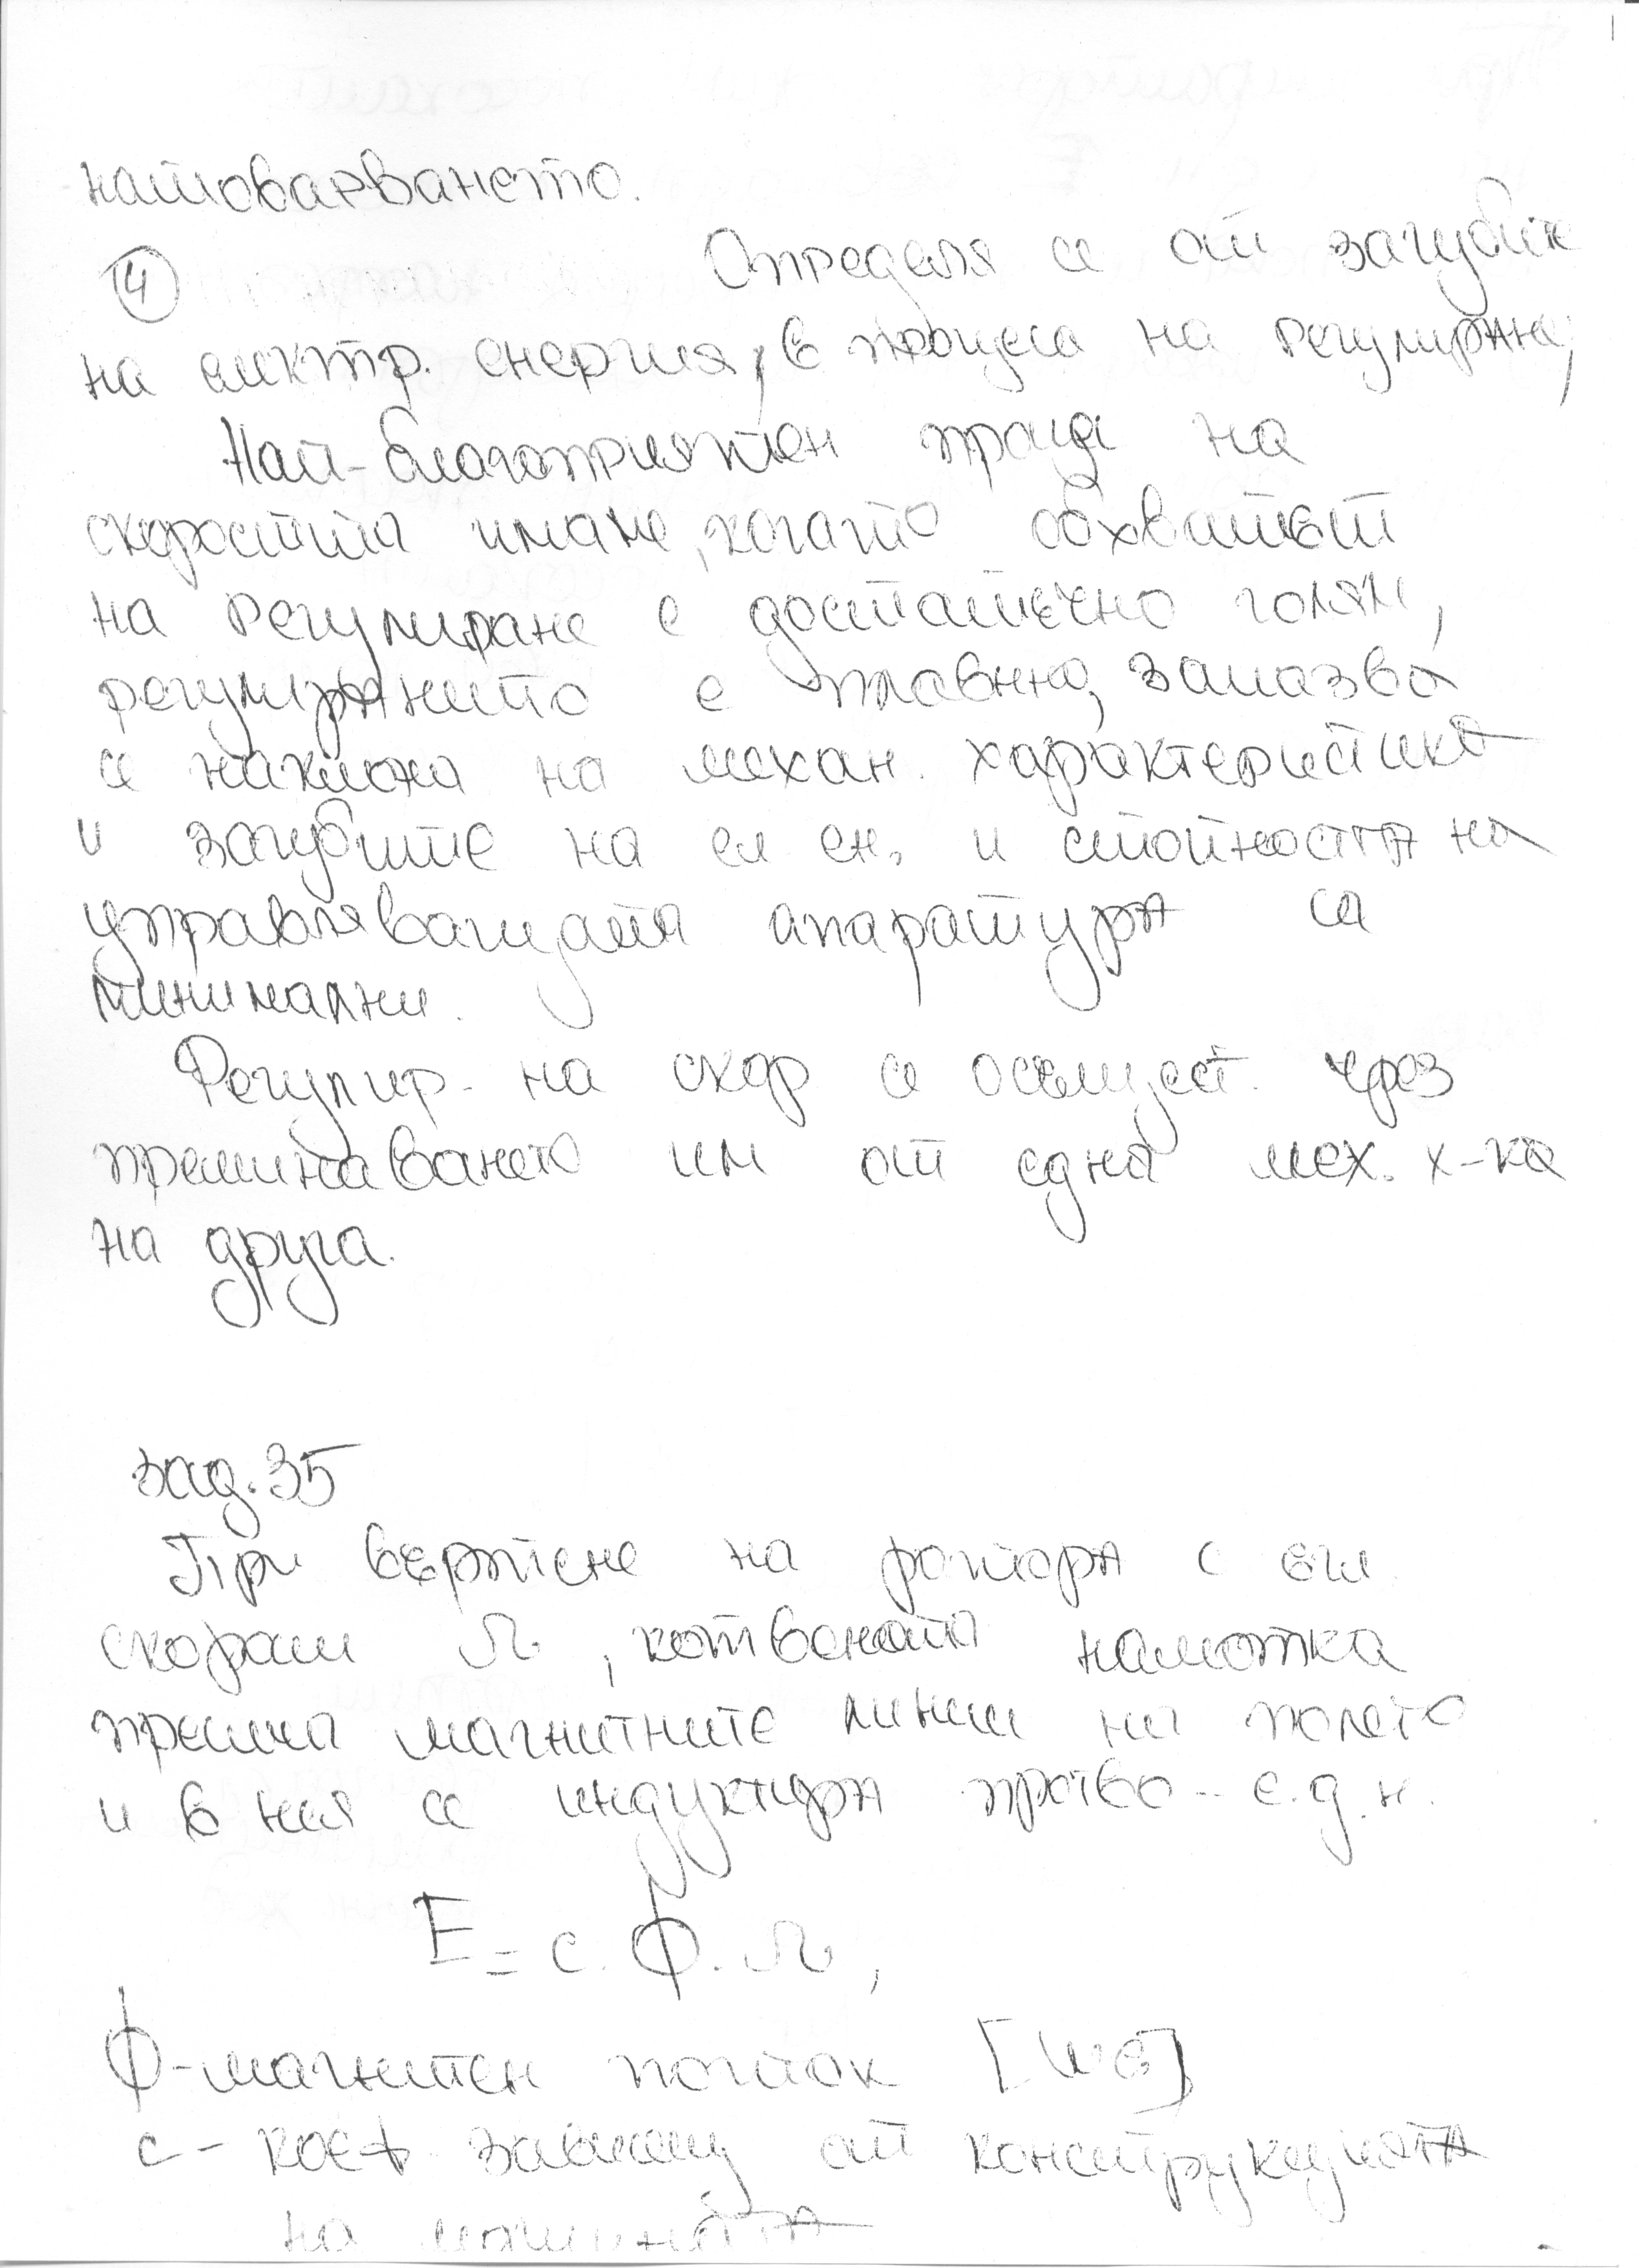 натоварването.
④ Определя се от загубите
на електр. енергия, в процеса на регулиране,
Най-благоприятен процес на
скоростта имаме, когато обхватът
на регулиране е достатъчно голям,
регулирането е плавно, запазва
се наклона на механ. характеристика
и загубите на ел ен. и стойността на
управляващата апаратура са
минимални.
Регулир. на скор се осъщест. чрез
преминаването им от една мех. х-ка
на друга.
зад.35
При въртене на ротора с ъгл.
скорост Ω, котвената намотка
пресича магнитните линии на полето
и в нея се индуктира противо-е.д.н.
E = c.Φ.Ω,
Φ-магнитен поток [Wb]
c - коеф зависещ от конструкцията
на машината